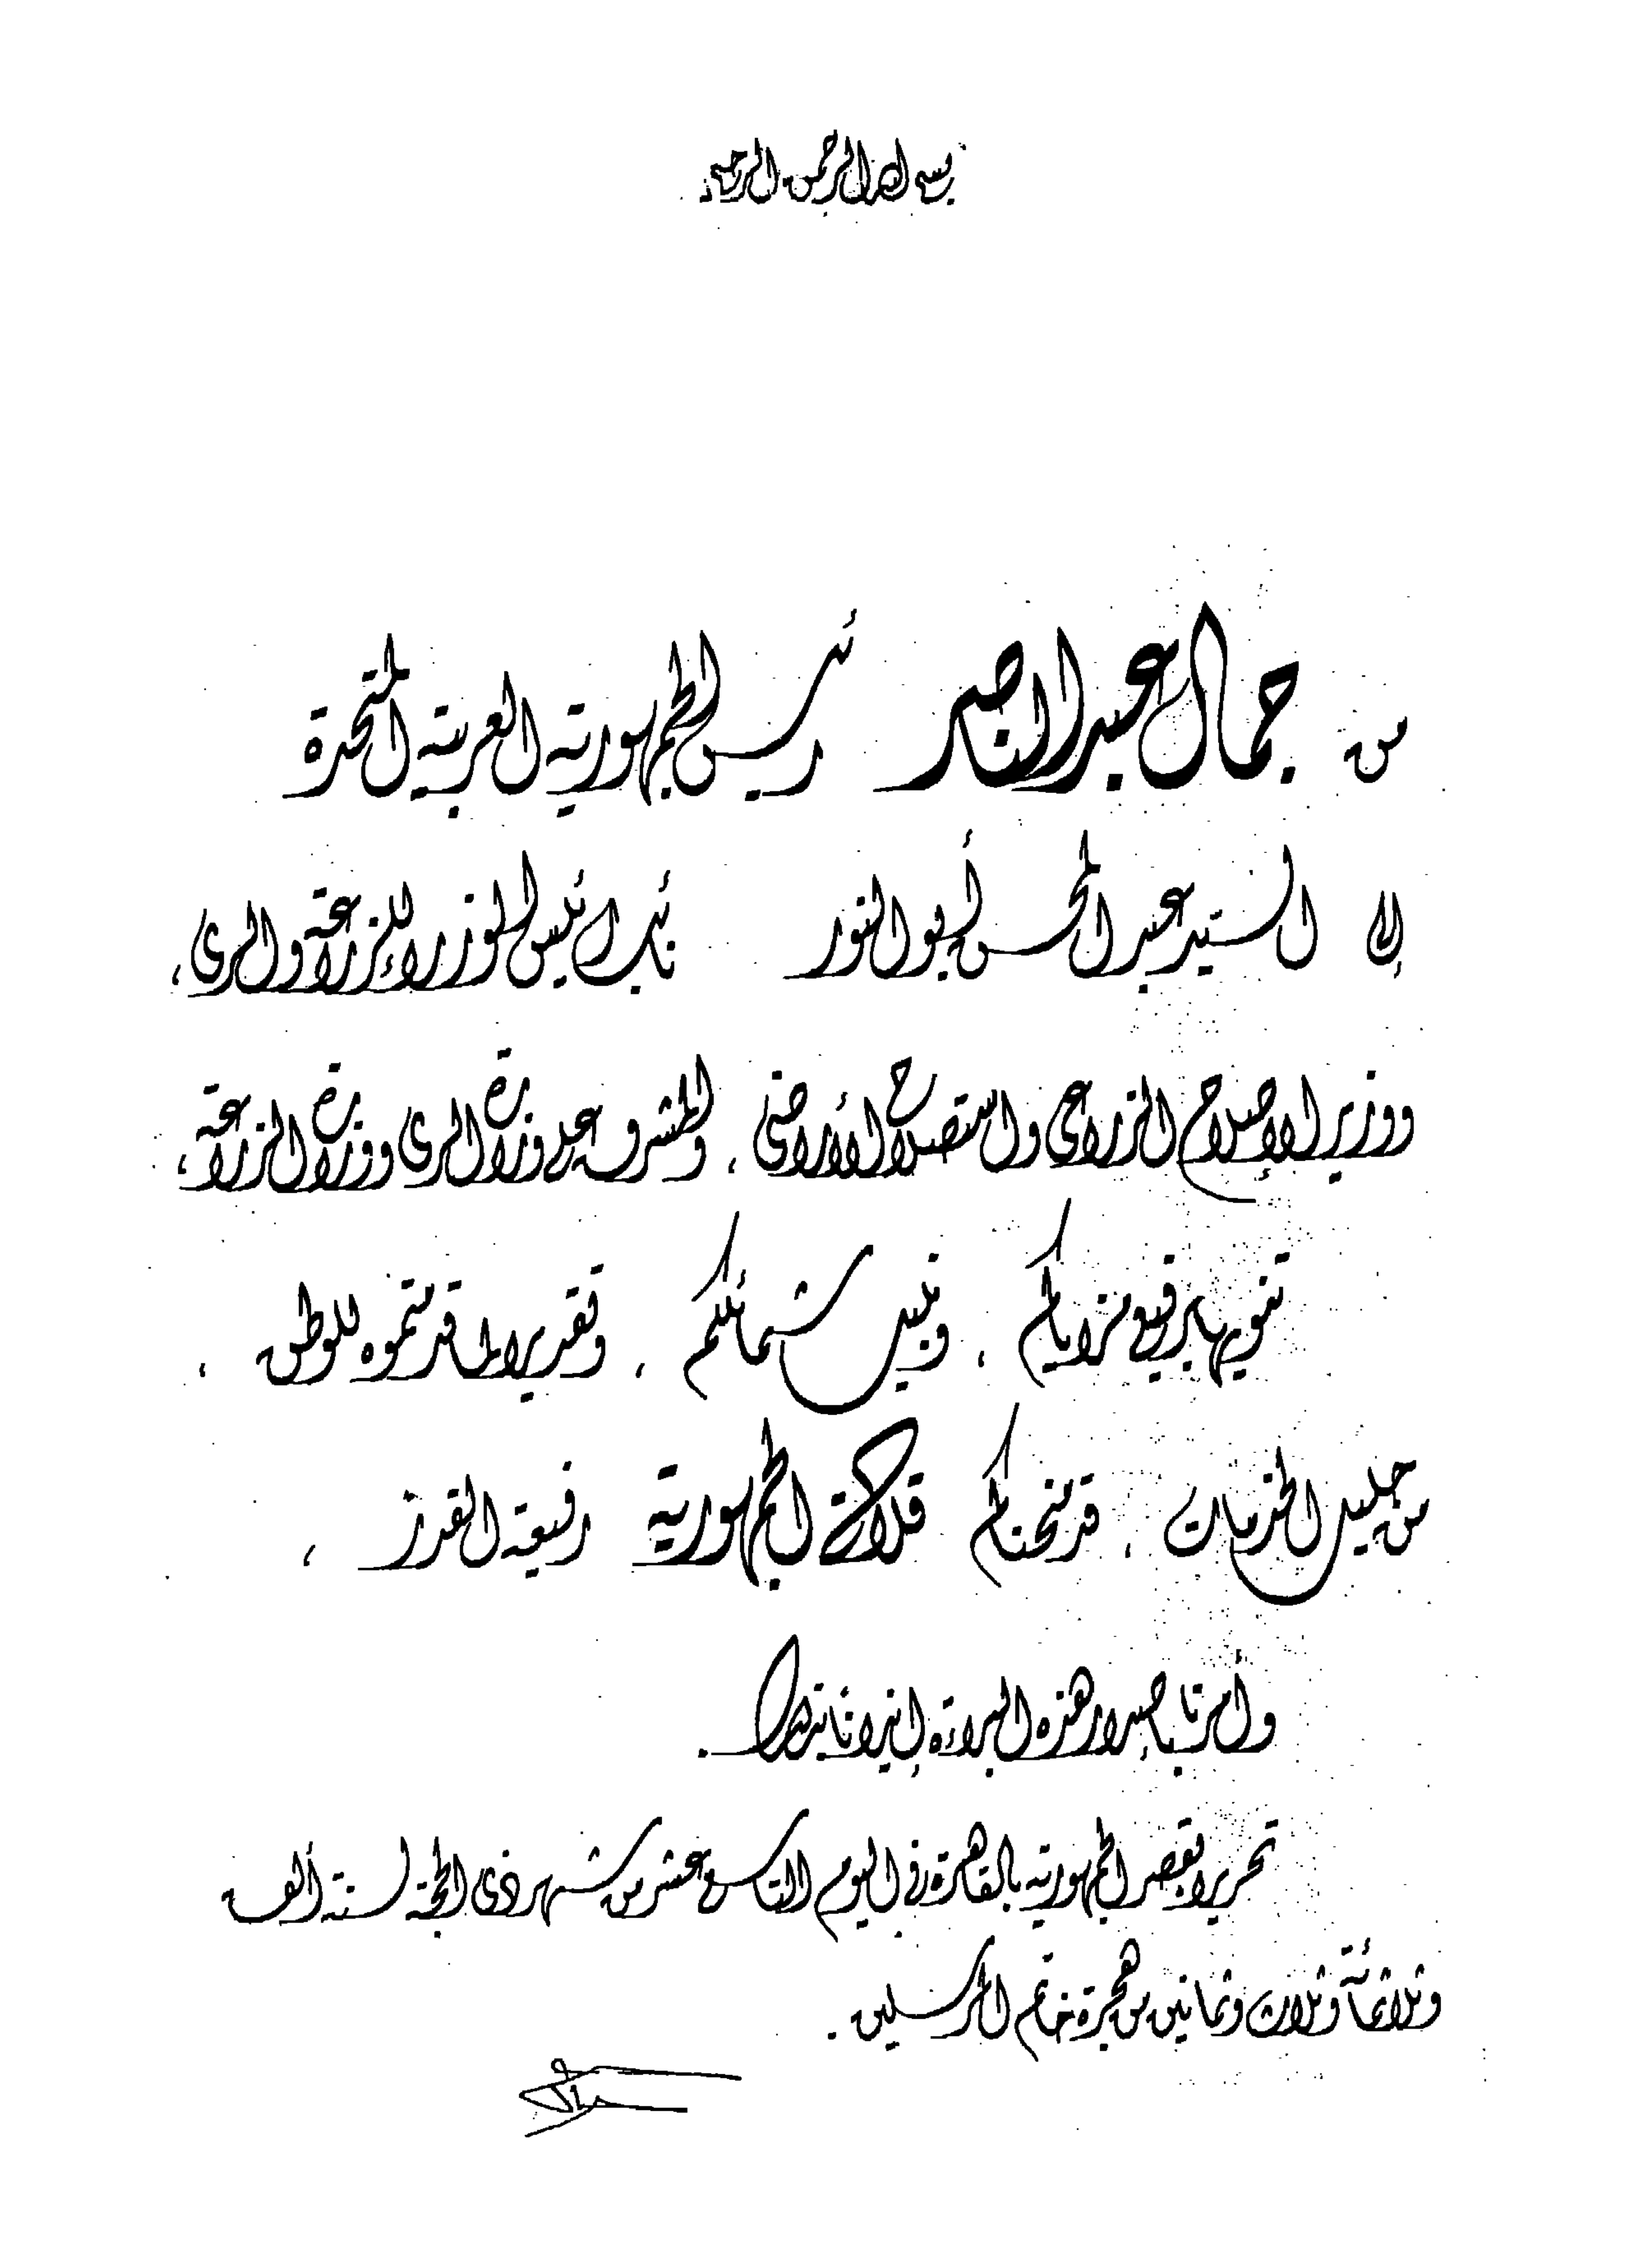 بسم الله الرحمن الرحيم
من جمال عبد الناصر رئيس الجمهورية العربية المتحدة
إلى السيد عبد المحسن أبو النور نائب رئيس الوزراء للزراعة والرى ،
ووزير الإصلاح الزراعى واستصلاح الأراضى ، والمشرف على وزارة الرى ووزارة الزراعة ،
تنويها برفيع مزاياكم ، ونبيل شمائلكم ، وتقديرا لما قدمتموه للوطن ،
من جليل الخدمات ، قد منحناكم قلادة الجمهورية رفيعة القدر ،
وأمرنا بإصدار هذه البراءة إيذانا بذلك .
تحريرا بقصر الجمهورية بالقاهرة فى اليوم التاسع عشر من شهر ذى الحجة لسنة ألف
وثلاثمائة وثلاث وثمانين من هجرة خاتم المرسلين .